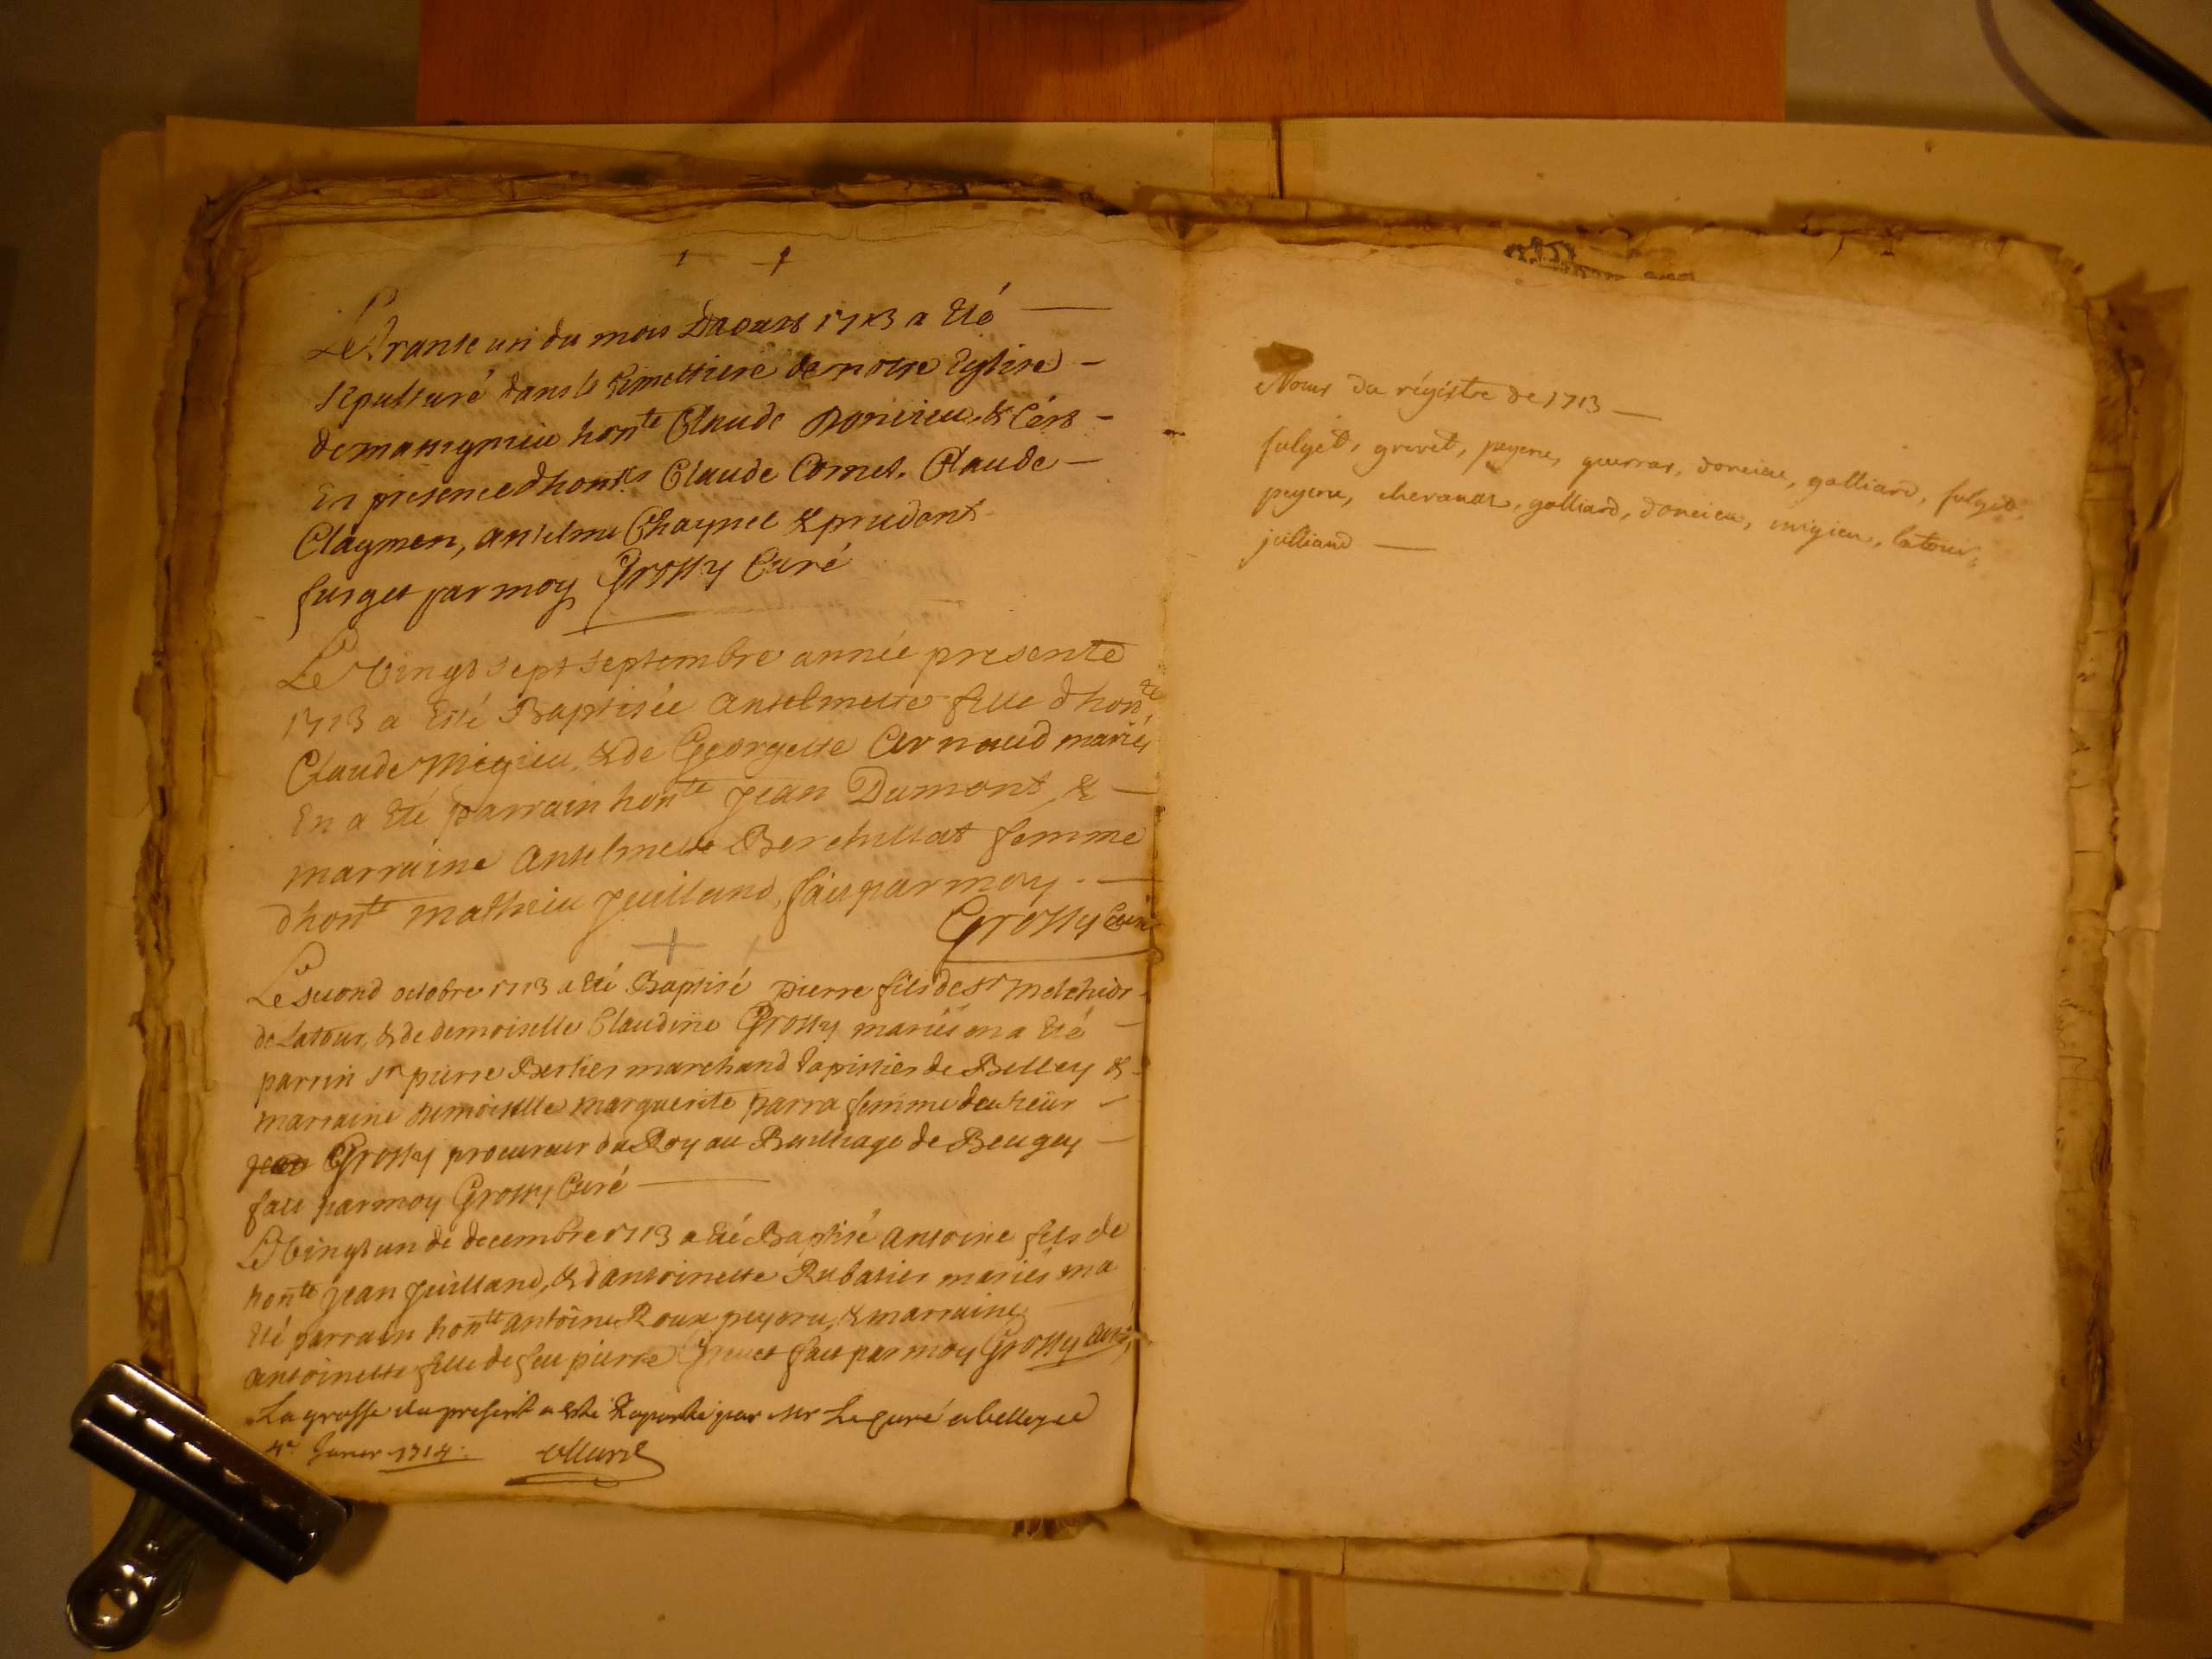 Le Trante un du mois Daoust 1713 a Eté
Sepulturé dans le Cimettiere de notre Eglise
de massignieu honte Claude Doncieu &
En presence dhontes Claude Cornet. Claude
Claymon, Anselme Chaynel & prudent
furget par moy Grossy Curé
Le Vingt sept septembre année presente
1713 a Eté Baptisée Anselmette fille dhonte
Claude Migieu, & de Georgette Arnaud mariés
En a Eté parrain honte Jean Dumont &
marraine Anselmette Berchillat femme
dhonte Mathieu Juilland, fait par moy.
Grossy Curé
Le second octobre 1713 a Eté Baptisé pierre fils de Sr Melchior
de Latour, & de demoiselle Claudine Grossy mariés en a Eté
parrin Sr pierre Bertier marchand tapissier de Belley &
marraine demoiselle marguerite parra femme du sieur
Grossy procureur du Roy au Bailliage de Beugey
fait par moy Grossy Curé
Le Vingt un de decembre 1713 a Eté Baptisé Antoine fils de
honte Jean Juilland, & dantoinette Rubatier mariés en a
Eté parrain honte antoine Roux peyeru, & marraine
antoinette fille de feu pierre Grevet fait par moy Grossy Curé,
La grosse du present a esté Raportée par Mr Le curé a belley ce
4e Janvier 1714.
Noms du régistre de 1713
fulget, grevet, peyeru, guerrar, doncieu, galliard, fulget.
peyeru, galliard, doncieu, migieu, latour,
juilliand